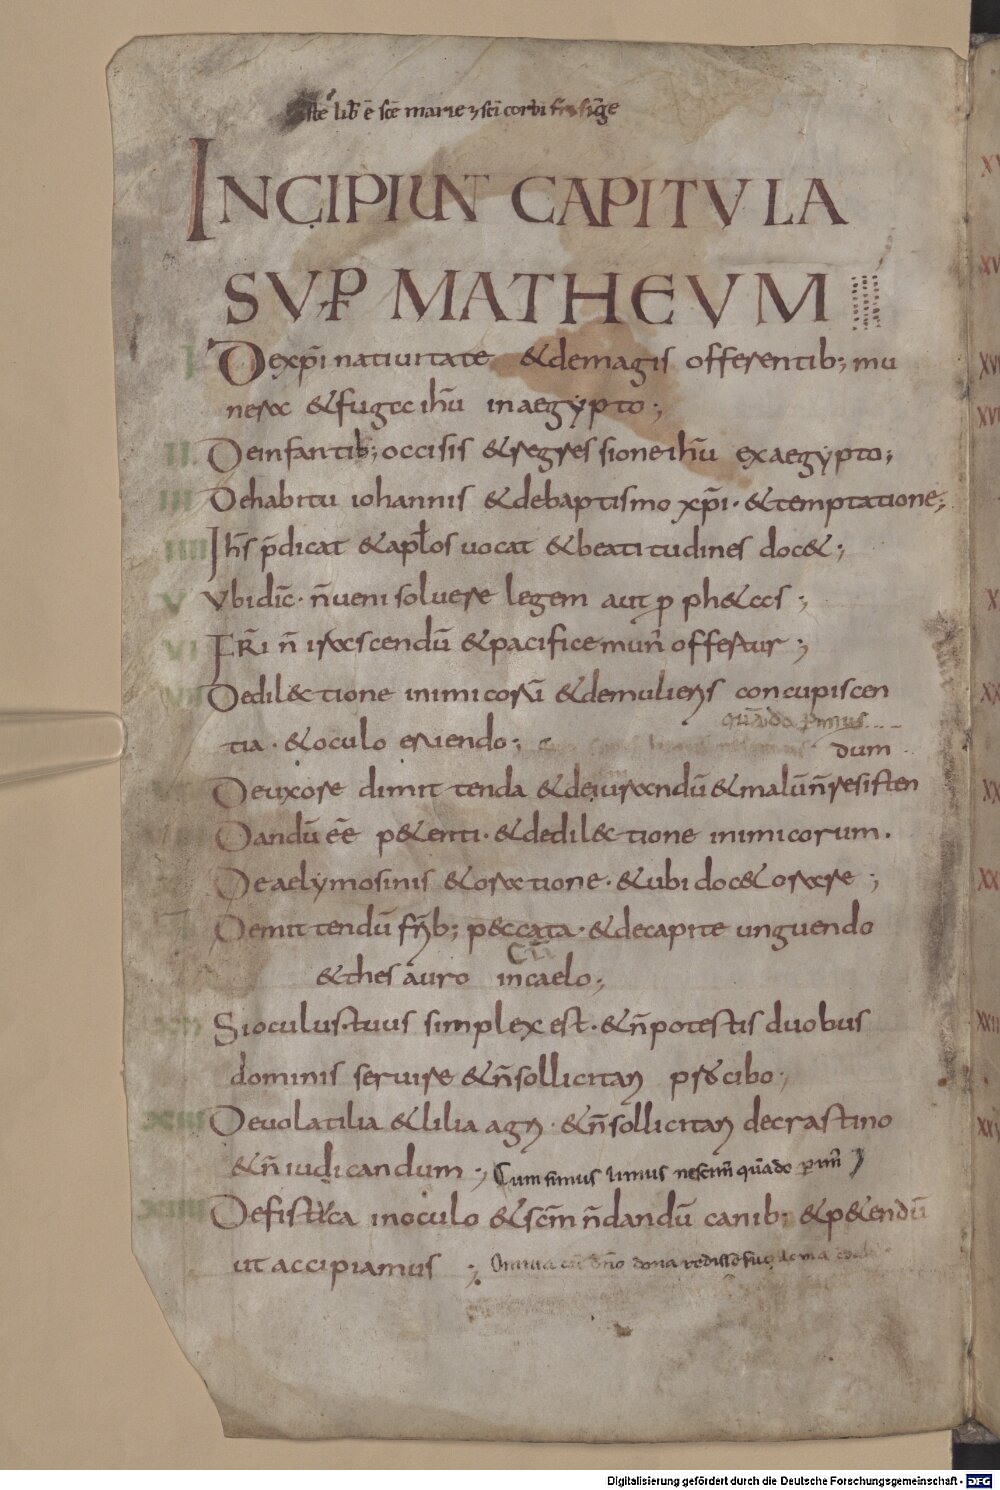 iste lib̄ ē scē marie ⁊ sci corbi frisinge
INCIPIUNT CAPITVLA
SVP̄ MATHEVM
I De xp̄i natiuitate & de magis offerentib; mu
nera & fuga ih̄u in aegypto;
II. De infantib; occisis & regressione ih̄u ex aegypto;
III De habitu iohannis & de baptismo xp̄i · & temptatione;
IIII Ih̄s p̄dicat & apl̄os uocat & beatitudines doc&;
V Vbi dic̄ · n̄ ueni soluere legem aut pphetas;
VI Fr̄i n̄ irascendū & pacifice mun̄ offeratur;
VII De dil&tione inimicorū & de mulieris concupiscen
quādo
tia · & oculo eruendo;
dum
De uxore dimittenda & de iurandū & malū n̄ resisten
Dandū eē p&enti · & de dil&tione inimicorum.
De aelymosinis & oratione · & ubi doc& orare;
De mittendū fr̄ib; peccata · & de capite unguendo
& thesauro in caelo;
Si oculus tuus simplex est · & n̄ potestis duobus
dominis seruire & n̄ sollicitari pro cibo;
De uolatilia & lilia agri · & n̄ sollicitari de crastino
& n̄ iudicandum; Cum simus limus nescim̄ quādo
De fistuca in oculo & scm̄ n̄ dandū canib; & p&endū
ut accipiamus; Omnia dona
Digitalisierung gefördert durch die Deutsche Forschungsgemeinschaft - DFG